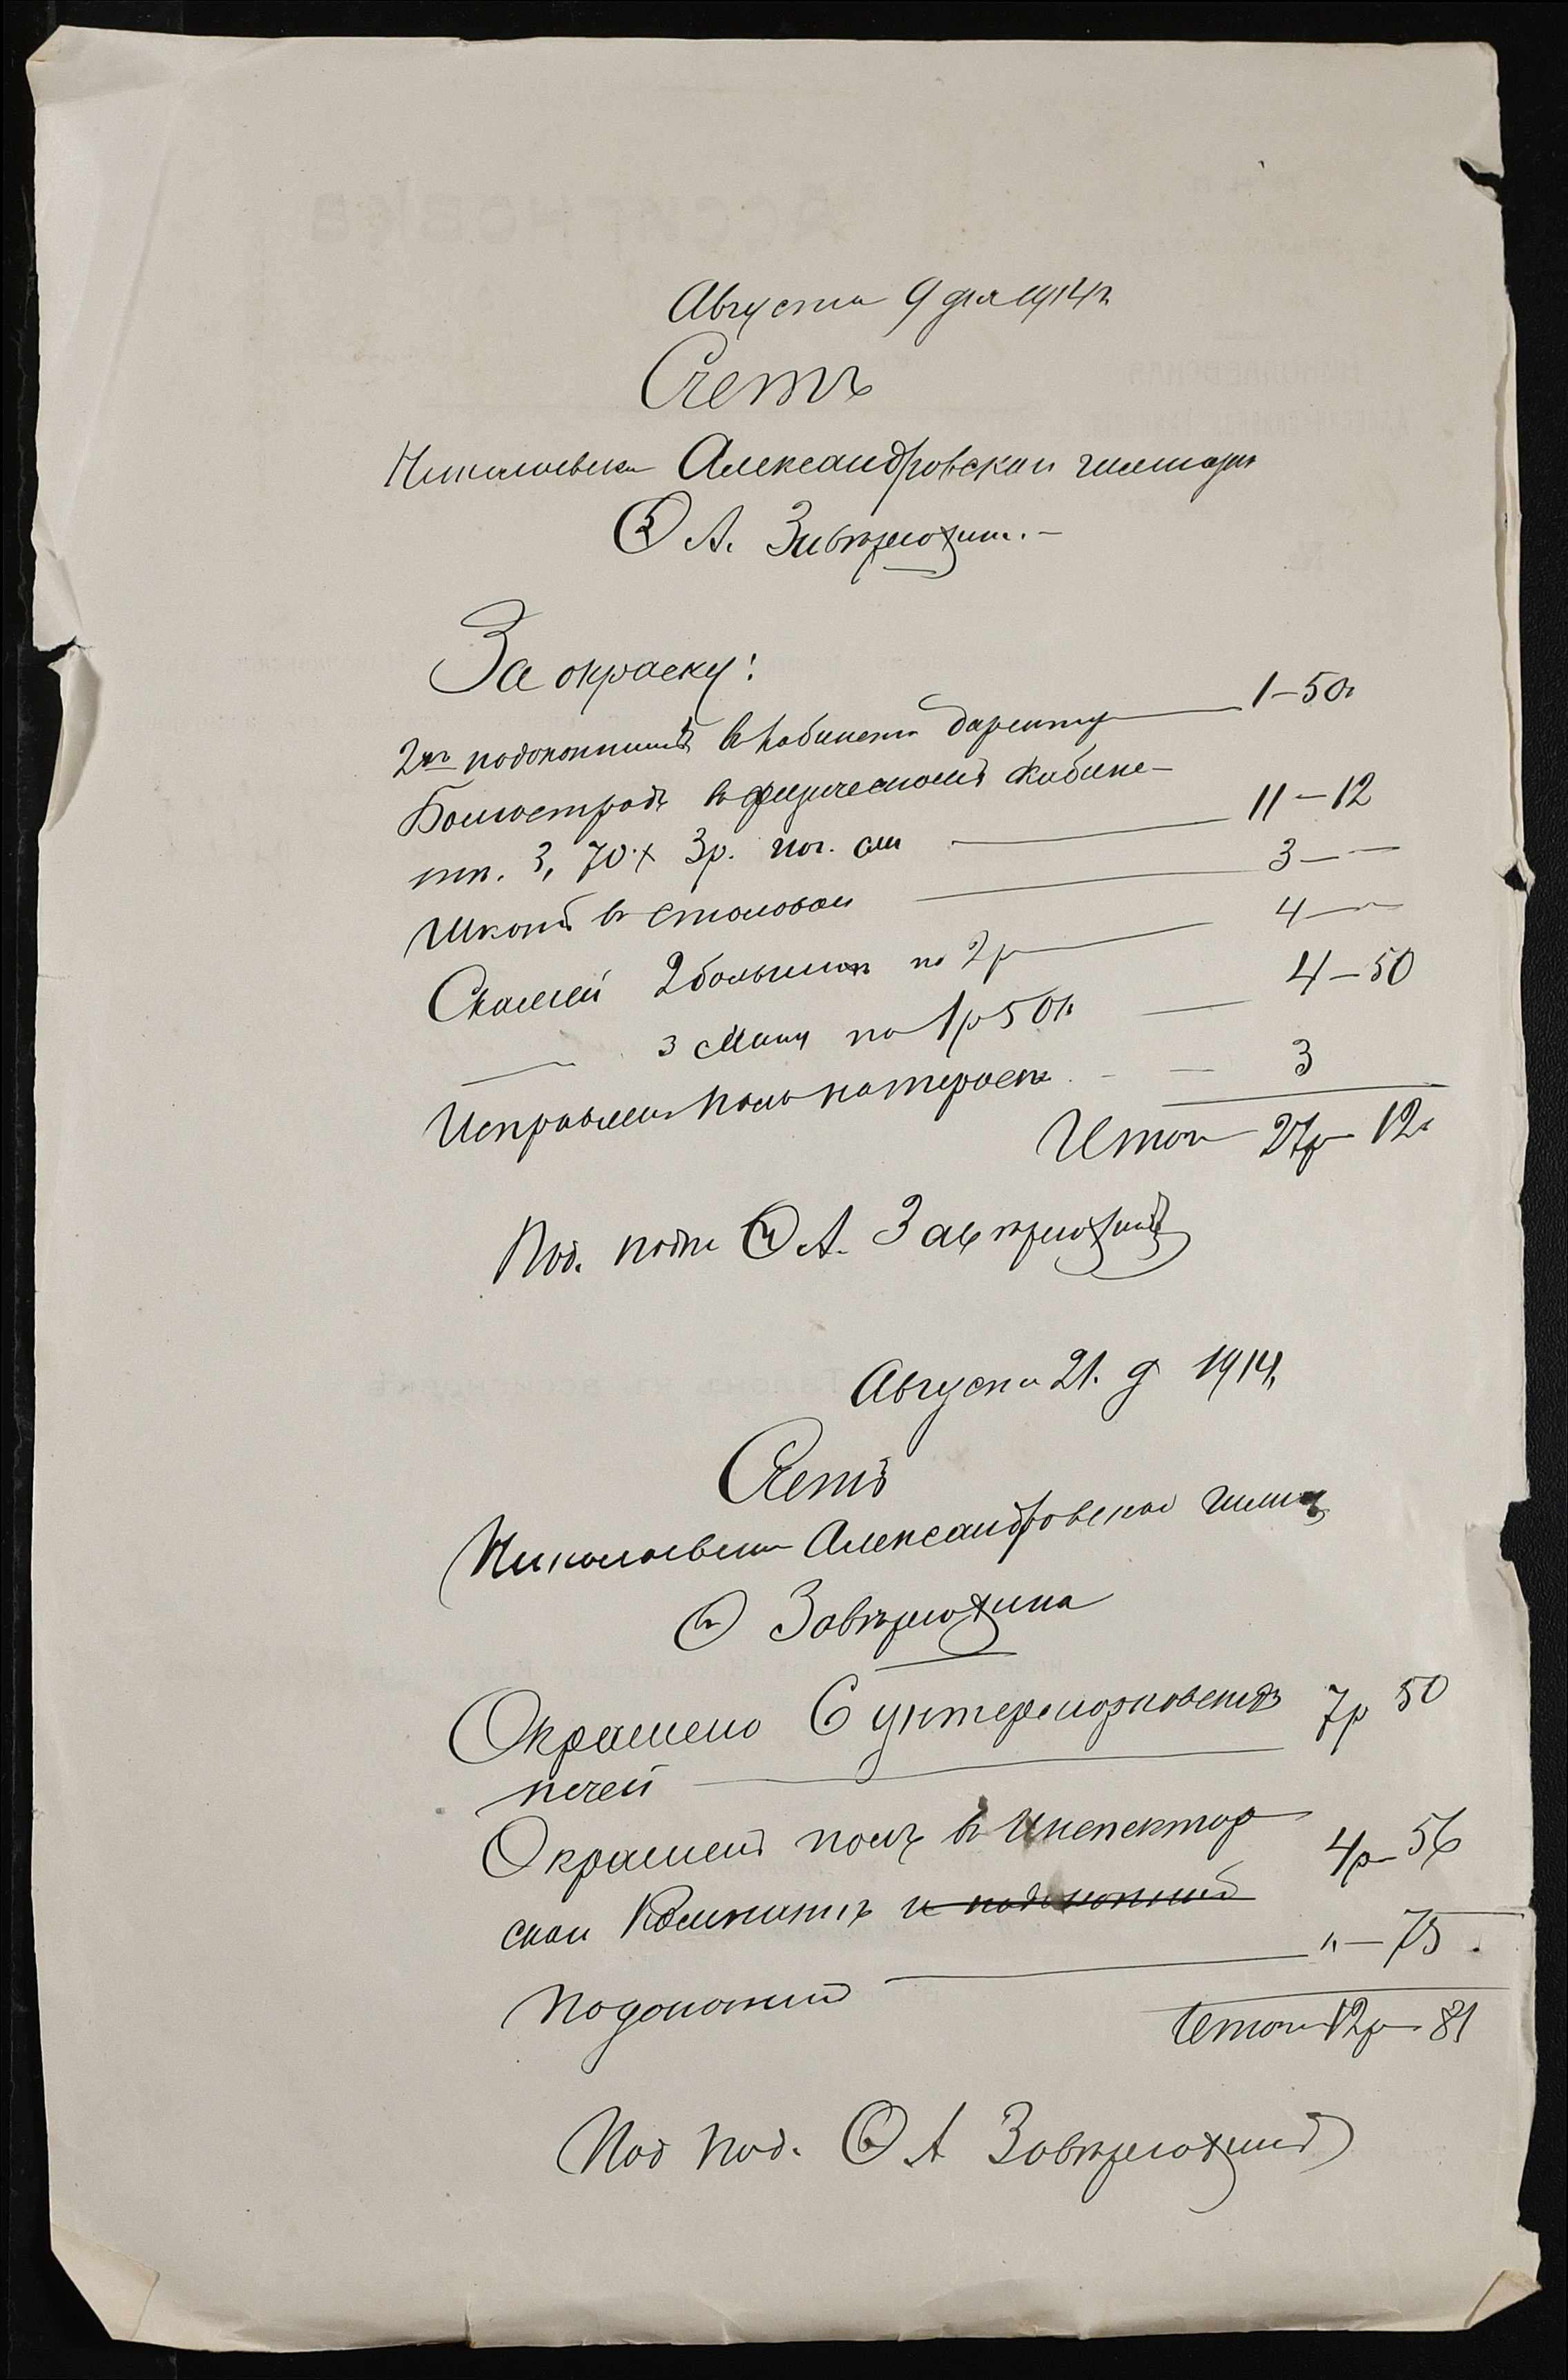 Августа 9 дня 1914 г
Счетъ
Николаевск Александровской гимназіи
Ѳ А. Завтрюхин. —
За окраску:
2хъ подоконниковъ въ кабинетѣ директор — 1 – 50 к
въ физическомъ кабине–
тѣ. 3, 70 × 3 р. пог. саж — 11 – 12
Шкапъ въ столовой — 3 — —
Скамей 2 большихъ по 2 р — 4 — —
— 3 мал по 1 р 50 к — 4 – 50
Исправлен пол на — — 3
Итого 27 р 12 к
Под. подп Ѳ А. Завтрюхинъ
Августа 21. д 1914
Счетъ
Николаевск Александровской гимназ
Ѳ Завтрюхина
Окрашено 6 унтермарковскихъ 7 р 50
печей —
Окрашенъ полъ въ Инспектор
ской Комнатѣ и подоконникъ 4 р – 56
подоконник — „ – 75.
Итого 12 р – 81
Под под. Ѳ А Завтрюхинъ